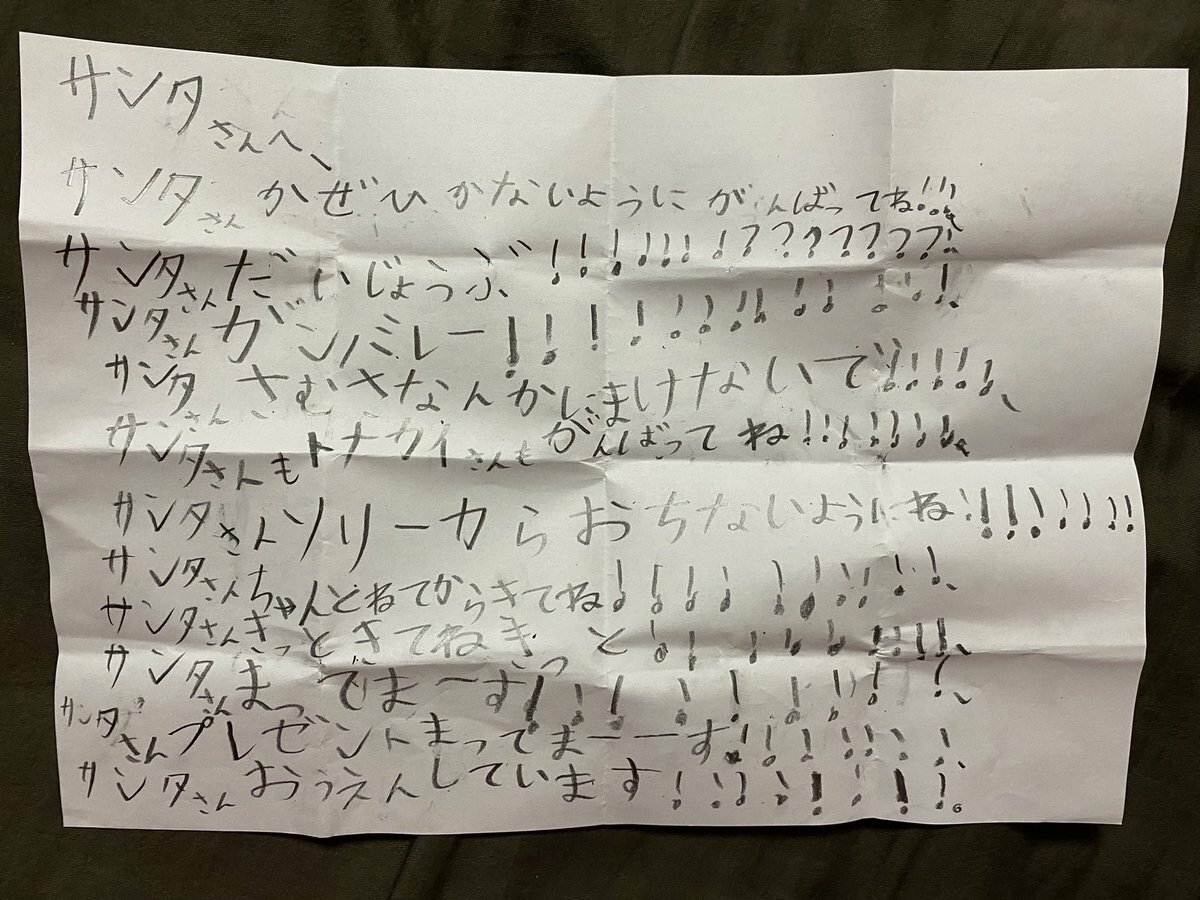 サンタさんへ、
サンタさんかぜひかないようにがんばってね!!!、
サンタさんだいじょうぶ!!!!!!!????????!
サンタさんガンバレー!!!!!!!!!!!!!
サンタさんさむさなんかにまけないで!!!!!!、
サンタさんもトナカイさんもがんばってね!!!!!!!!、
サンタさんソリーからおちないようにね!!!!!!!!!
サンタさんちゃんとねてからきてね!!!!!!!!!!、
サンタさんきっときてねきっと!!!!!!!!!!、
サンタさんまってまーす!!!!!!!!!、
サンタさんプレゼントまってまーーす!!!!!!!!、
サンタさんおうえんしています!!!!!!!!。